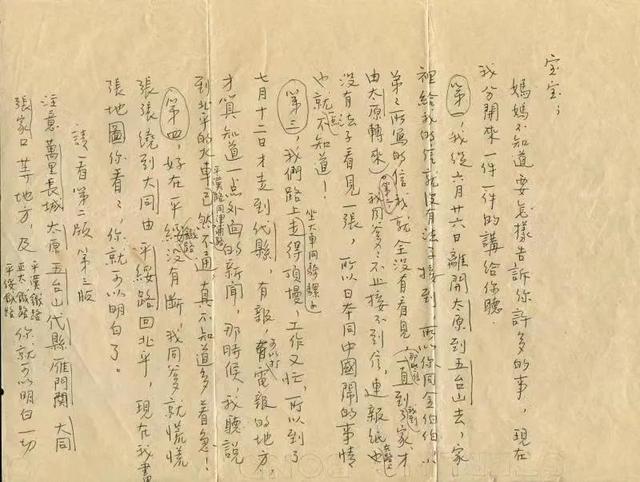 宝宝：
媽媽不知道要怎樣告訴你許多的事，現在
我分開來一件一件的講給你聽。
第一，我從六月廿六日離開太原到五台山去，家
裡給我的信就沒有法子接到，所以你同金伯伯、
弟弟所寫的信我就全沒有看見（那些信一直到了家才
由太原轉來）
第二，我同爹爹不止接不到信，連報紙也
沒有法子看見一張，所以日本同中國鬧的事情
也就不知道！
第三，我們路上坐大車同騎騾子，走得頂慢，工作又忙，所以到了
七月十二日才走到代縣，有報，可以打電報的地方，
才算知道一点外面的新聞，那時候，我聽說
到北平的火車，平漢路同同蒲路已然不通，真不知道多着急！
第四，好在平綏鐵路沒有斷，我同爹爹就慌慌
張張繞到大同由平綏路回北平，現在我畫
張地圖你看看，你就可以明白了。
請看第二版 第三版
注意萬里長城 太原 五台山 代縣 雁門關 大同
張家口 等地方，及
平漢鐵路
正太鐵路
平綏鐵路
你就可以明白一切